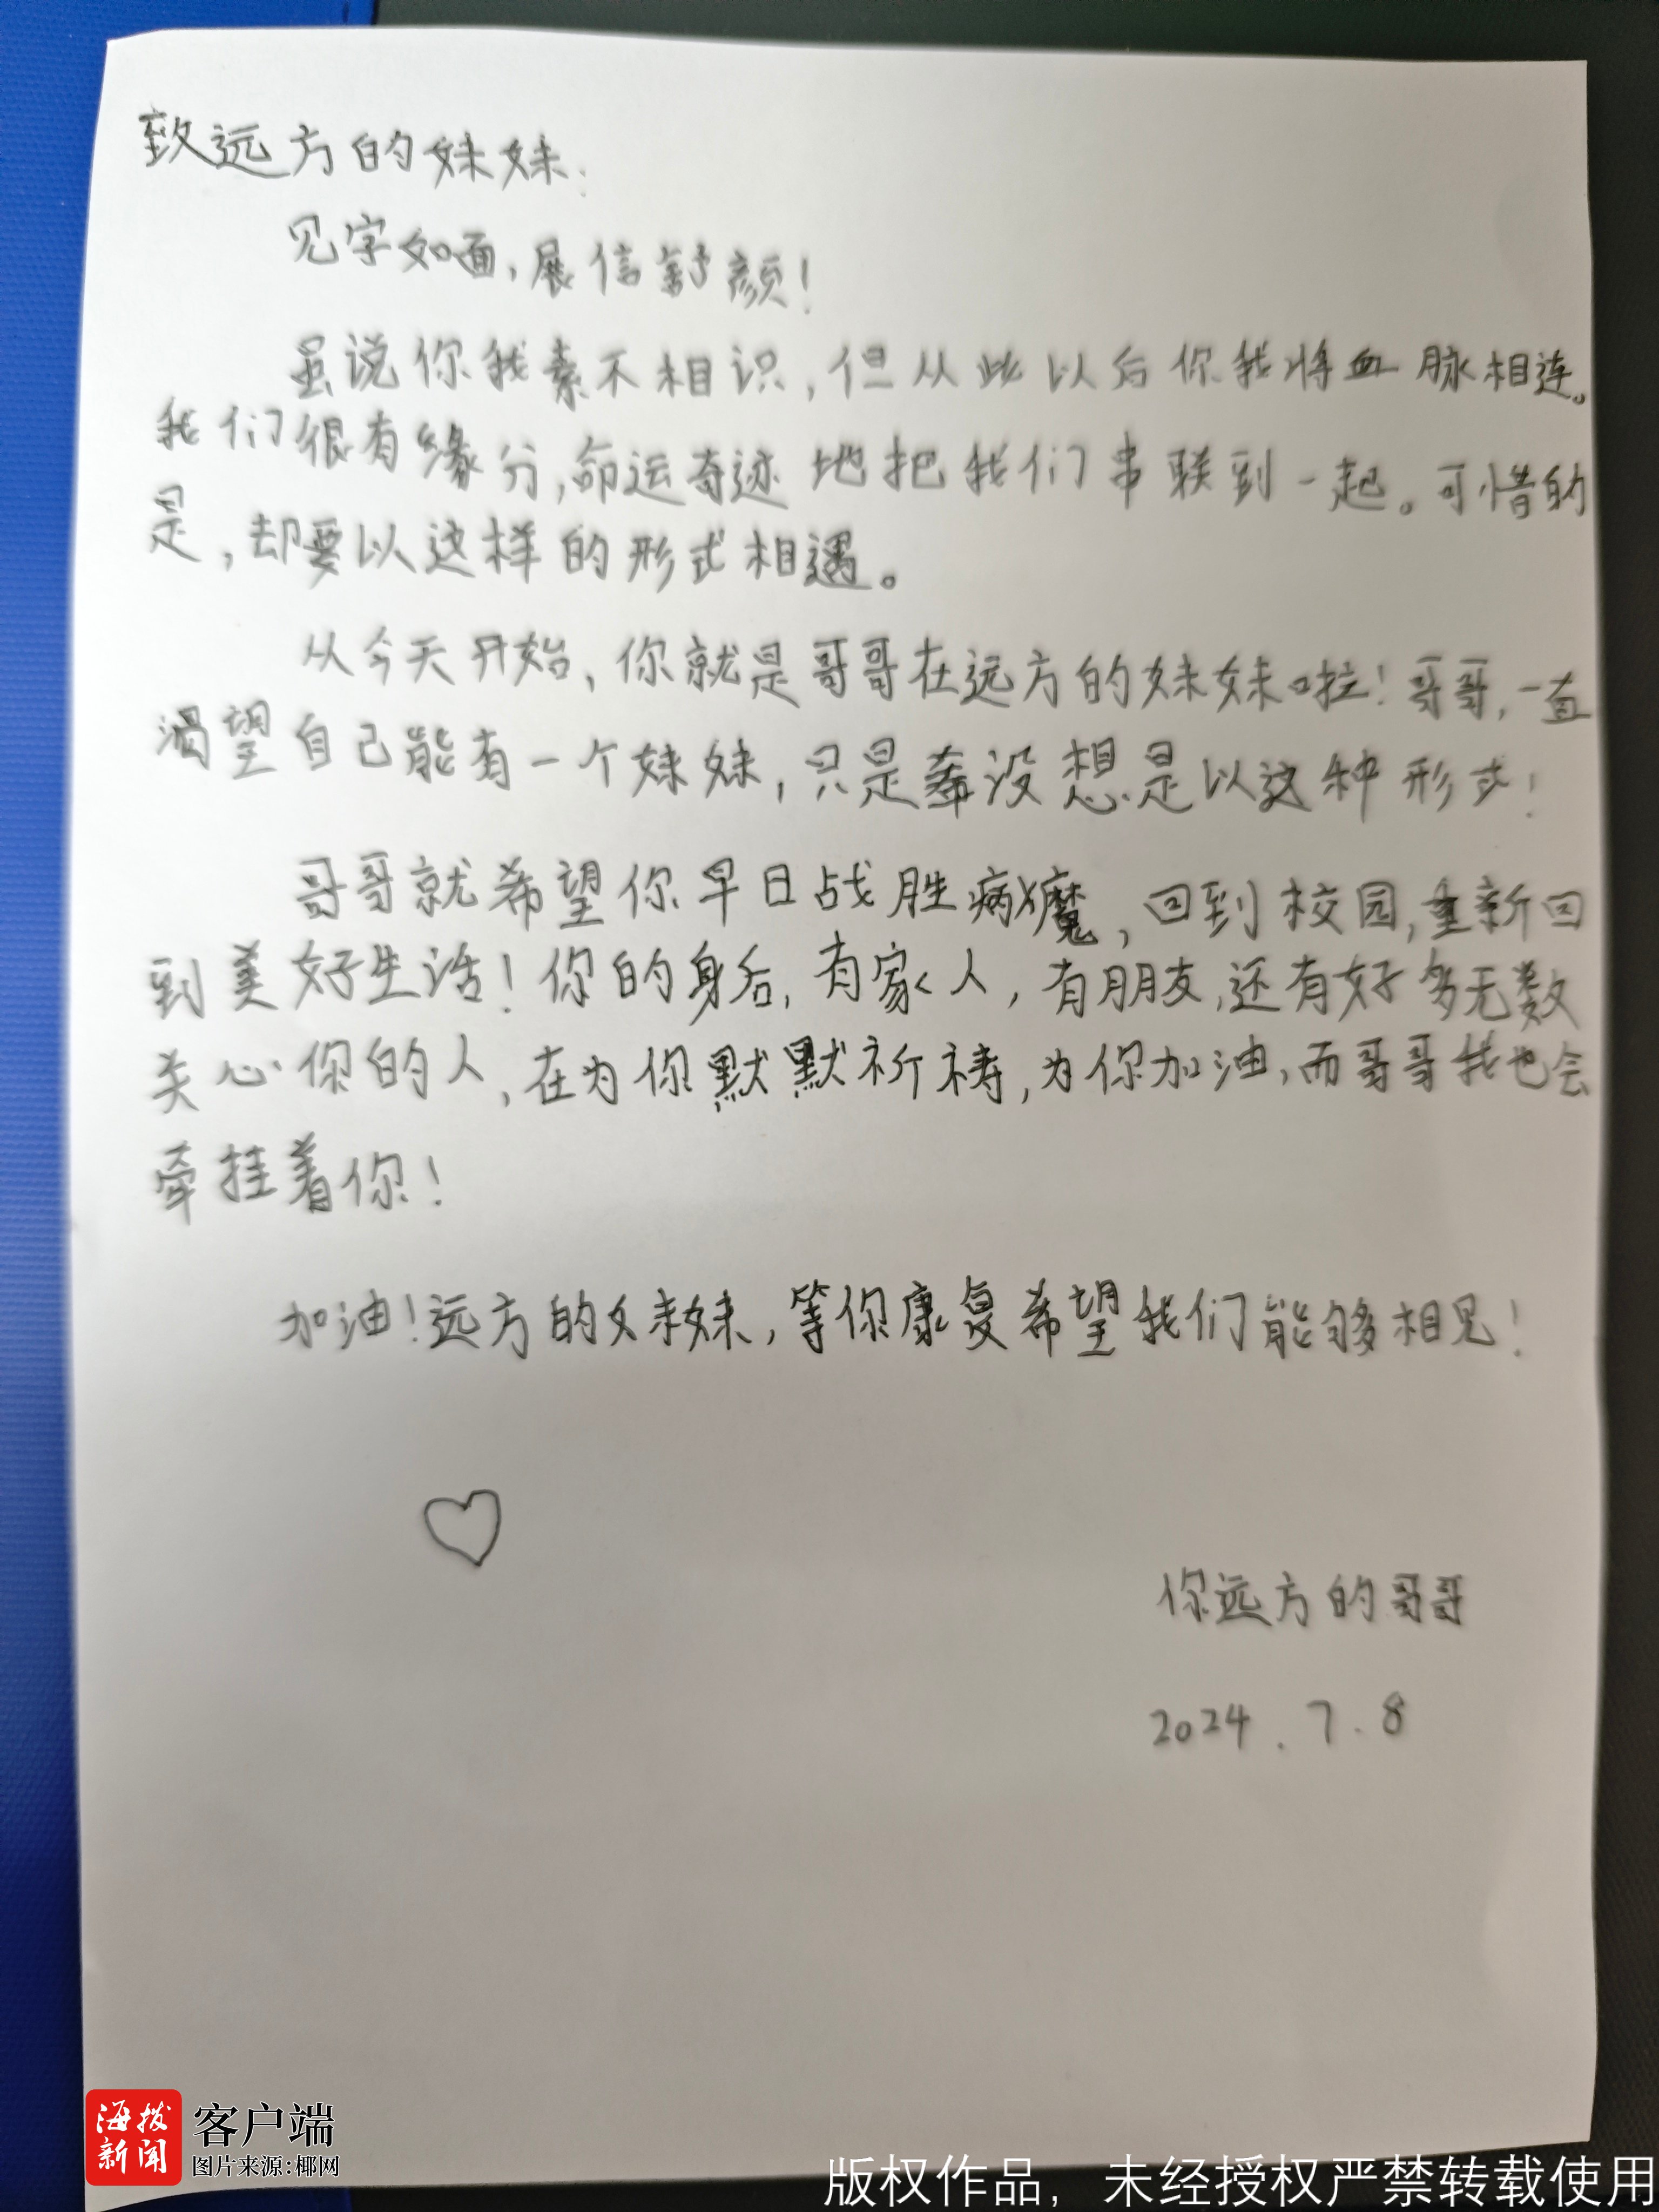 致远方的妹妹:
见字如面,展信舒颜!
虽说你我素不相识,但从此以后你我将血脉相连。
我们很有缘分,命运奇迹地把我们串联到一起。可惜的
是,却要以这样的形式相遇。
从今天开始,你就是哥哥在远方的妹妹啦!哥哥,一直
渴望自己能有一个妹妹,只是没想是以这种形式!
哥哥就希望你早日战胜病魔,回到校园,重新回
到美好生活!你的身后,有家人,有朋友,还有好多无数
关心你的人,在为你默默祈祷,为你加油,而哥哥我也会
牵挂着你!
加油!远方的妹妹,等你康复希望我们能够相见!
你远方的哥哥
2024.7.8
海拔新闻
客户端
图片来源:椰网
版权作品,未经授权严禁转载使用